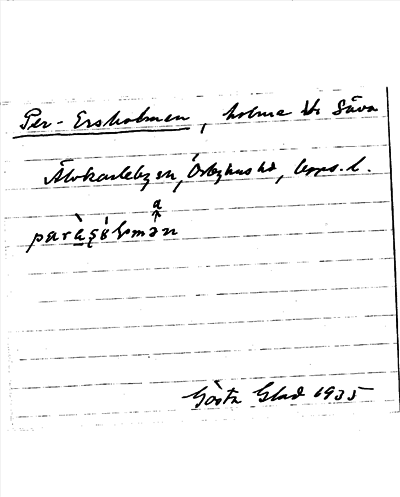 Per-Ersholmen, holme i Säva
Älvkarleby sn, Örbyhus hd, Upps. l.
a
Gösta Glad 1935